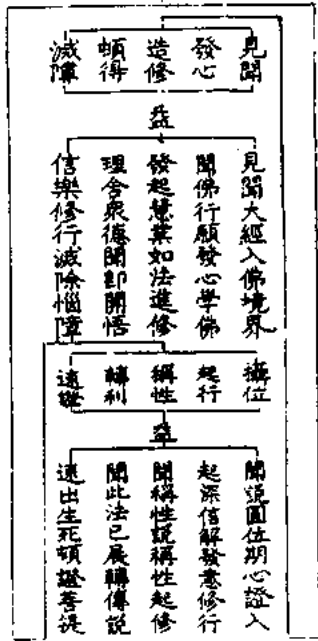 見聞
發心
造修
頓得
滅障
益
見聞大經入佛境界
聞佛行願發心學佛
發起慧業如法進修
理含衆德聞即開悟
信樂修行滅除惱障
攝位
起行
稱性
轉利
速證
益
聞說圓位期心證入
起深信解發意修行
聞稱性說稱性起修
聞此法已展轉傳說
速出生死頓證菩提